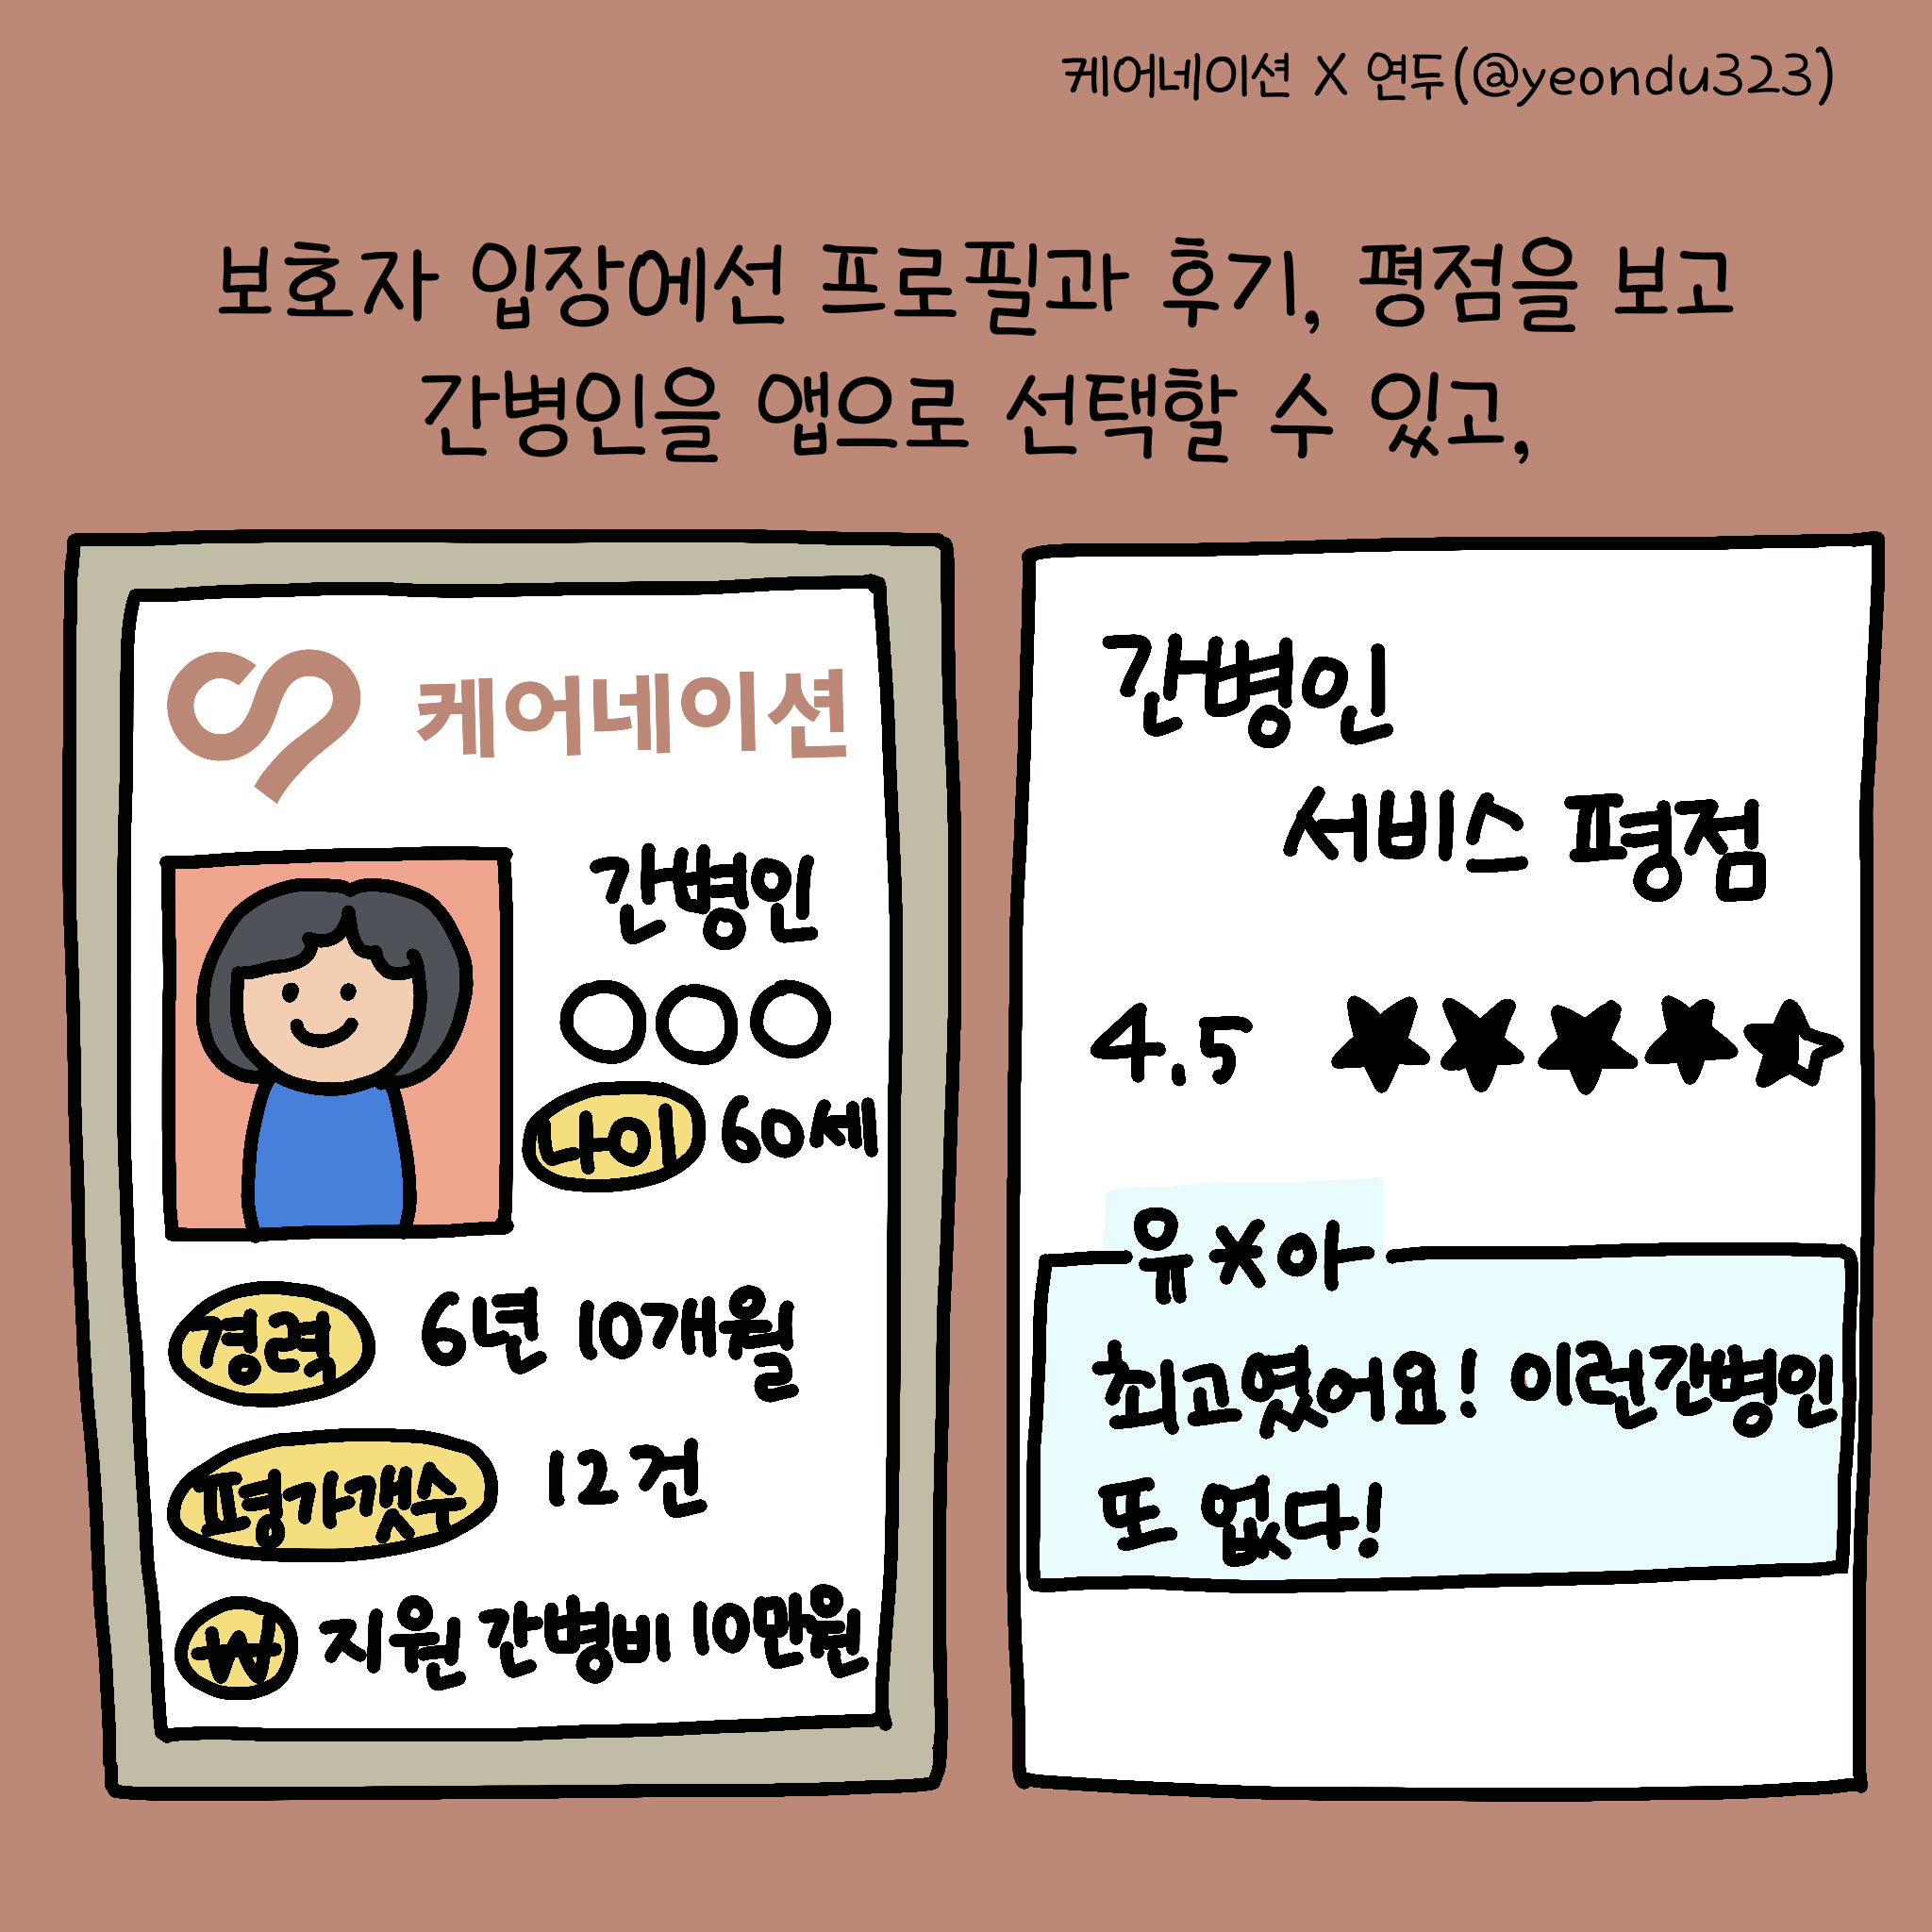 케어네이션 X 연두(@yeondu323)
보호자 입장에선 프로필과 후기, 평점을 보고
간병인을 앱으로 선택할 수 있고,
케어네이션
간병인
○○○
나이 60세
경력 6년 10개월
평가갯수 12건
₩ 지원 간병비 10만원
간병인
서비스 평점
4.5 ★★★★⯪
유*아
최고였어요! 이런간병인
또 없다!